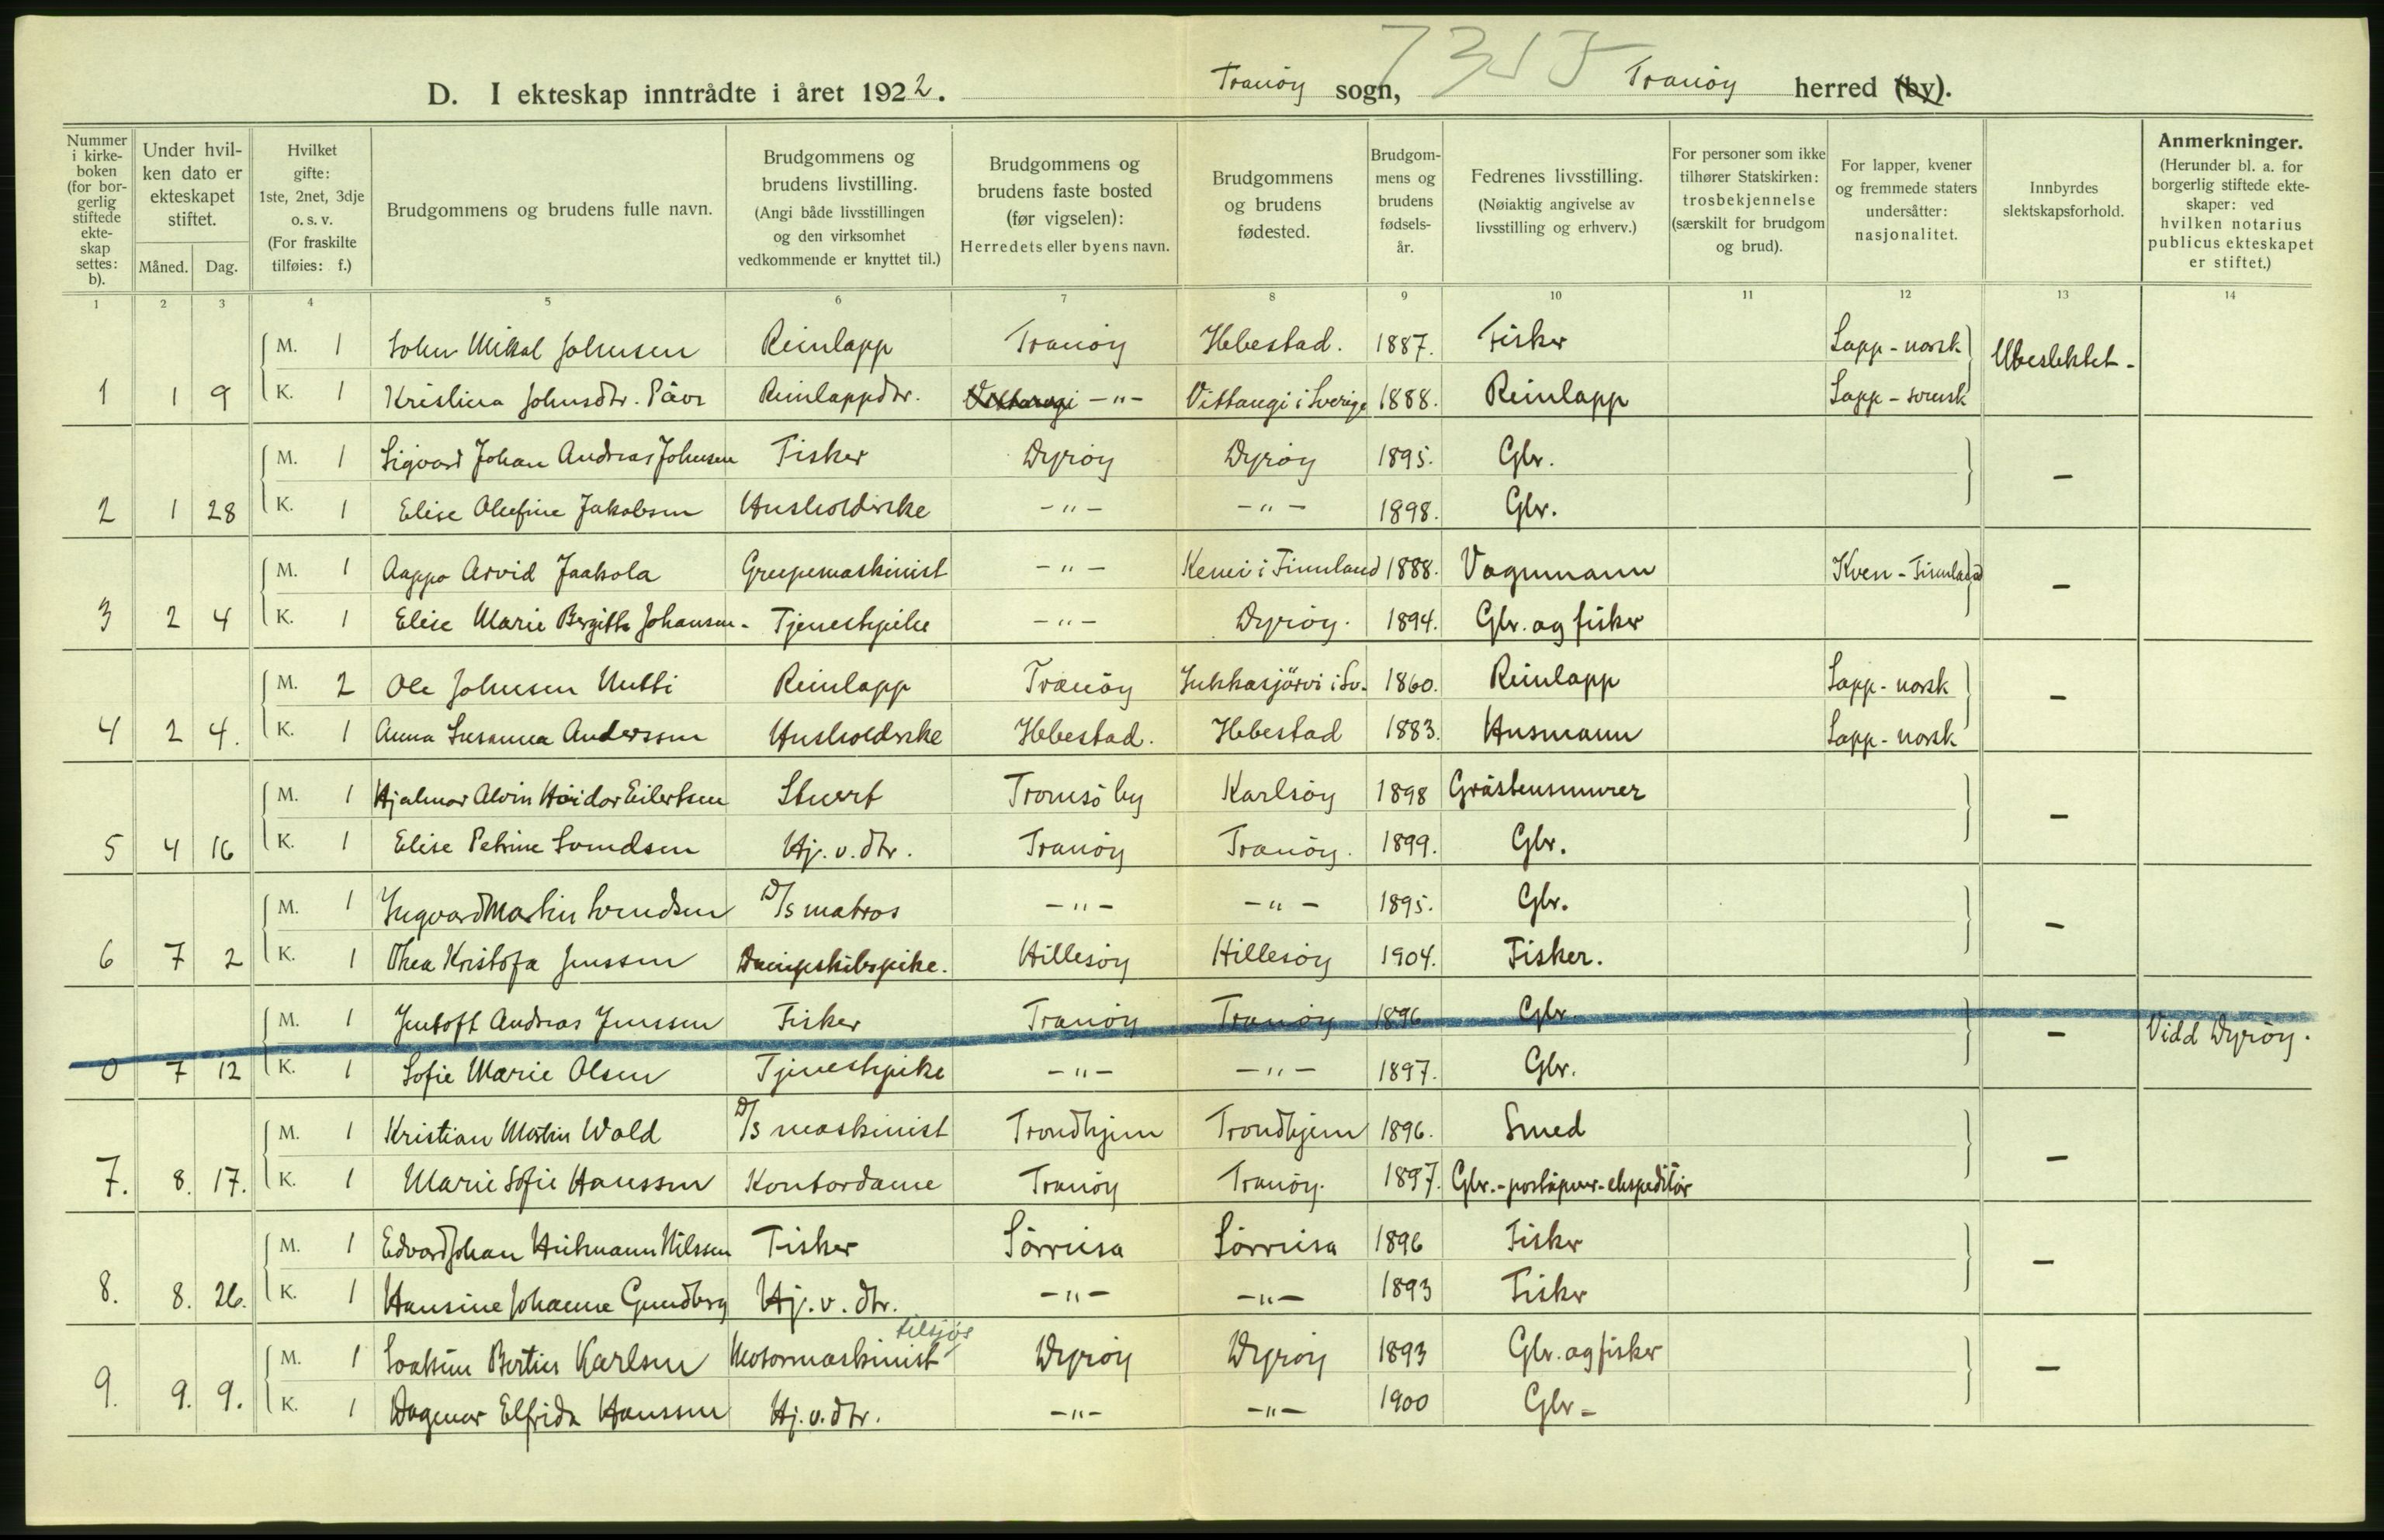 7355
D. I ekteskap inntrådte i året 1922. Tranöy sogn, Tranöy herred (by).
Nummer i kirkeboken (for borgerlig stiftede ekteskap settes: b).
Under hvilken dato er ekteskapet stiftet.
Måned. Dag.
Hvilket gifte: 1ste, 2net, 3dje o. s. v. (For fraskilte tilføies: f.)
Brudgommens og brudens fulle navn.
Brudgommens og brudens livstilling. (Angi både livsstillingen og den virksomhet vedkommende er knyttet til.)
Brudgommens og brudens faste bosted (før vigselen): Herredets eller byens navn.
Brudgommens og brudens fødested.
Brudgommens og brudens fødsels-år.
Fedrenes livsstilling. (Nøiaktig angivelse av livsstilling og erhverv.)
For personer som ikke tilhører Statskirken: trosbekjennelse (særskilt for brudgom og brud).
For lapper, kvener og fremmede staters undersåtter: nasjonalitet.
Innbyrdes slektskapsforhold.
Anmerkninger. (Herunder bl. a. for borgerlig stiftede ekteskaper: ved hvilken notarius publicus ekteskapet er stiftet.)
1 2 3 4 5 6 7 8 9 10 11 12 13 14
M. 1 John Mikal Johnsen Reinlapp Tranöy Hebestad. 1887. Fisker Lapp - norsk Ubeslektet -
1 1 9 K. 1 Kristina Johnsdtr. Påvs Reinlappdtr. Vittangi -"- Vittangi i Sverige 1888. Reinlapp Lapp - svensk
M. 1 Sigvard Johan Andreas Johnsen Fisker Dyröy Dyröy 1895. Gbr. -
2 1 28 K. 1 Elise Olufine Jakobsen Husholderske -"- -"- 1898. Gbr.
M. 1 Aappo Arvid Jaakola Grupemaskinist -"- Kemi i Finnland 1888. Vognmann Kven - Finnland -
3 2 4 K. 1 Elise Marie Bergitte Johansen - Tjenestpike -"- Dyröy. 1894. Gbr. og fisker
M. 2 Ole Johnsen Nutti Reinlapp Tranöy Jukkasjärvi i Sv. 1860. Reinlapp Lapp - norsk -
4 2 4. K. 1 Anna Susanna Anderssen Husholderske Hebestad. Hebestad 1883. Husmann Lapp - norsk
M. 1 Hjalmar Alvin Höidar Eilertsen Stuert Tromsö by Karlsöy 1898 Gråstensmurer -
5 4 16 K. 1 Elise Petrine Svendsen Hj. v. dtr. Tranöy Tranöy. 1899. Gbr.
M. 1 Ingvard Martin Svendsen D/s matros -"- -"- 1895. Gbr. -
6 7 2 K. 1 Thea Kristofa Jenssen Dampskibspike. Hillesöy Hillesöy 1904. Fisker.
M. 1 Jentoft Andreas Jenssen Fisker Tranöy Tranöy 1896 Gbr. - Vidd Dyröy.
0 7 12 K. 1 Sofie Marie Olsen Tjenestpike -"- -"- 1897. Gbr.
M. 1 Kristian Martin Wold D/s maskinist Trondhjem Trondhjem 1896. Smed -
7. 8. 17. K. 1 Marie Sofie Hanssen Kontordame Tranöy Tranöy. 1897. Gbr. - poståpner - ekspeditör
M. 1 Edvard Johan Hickmann Nilssen Fisker Sörreisa Sörreisa 1896 Fisker -
8. 8. 26. K. 1 Hansine Johanne Grundberg Hj. v. dtr. -"- -"- 1893 Fisker
tilsjös
M. 1 Joakim Bertin Karlsen Motormaskinist Dyröy Dyröy 1893 Gbr. og fisker -
9. 9. 9. K. 1 Dagmar Elfrida Hanssen Hj. v. dtr. -"- -"- 1900 Gbr -